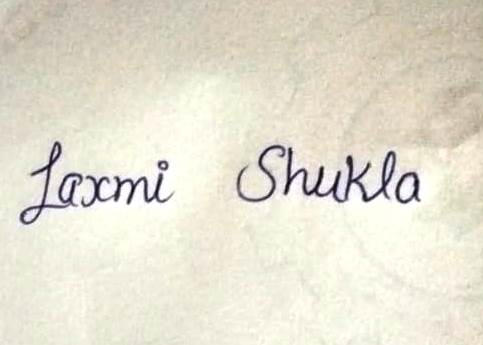 Laxmi Shukla